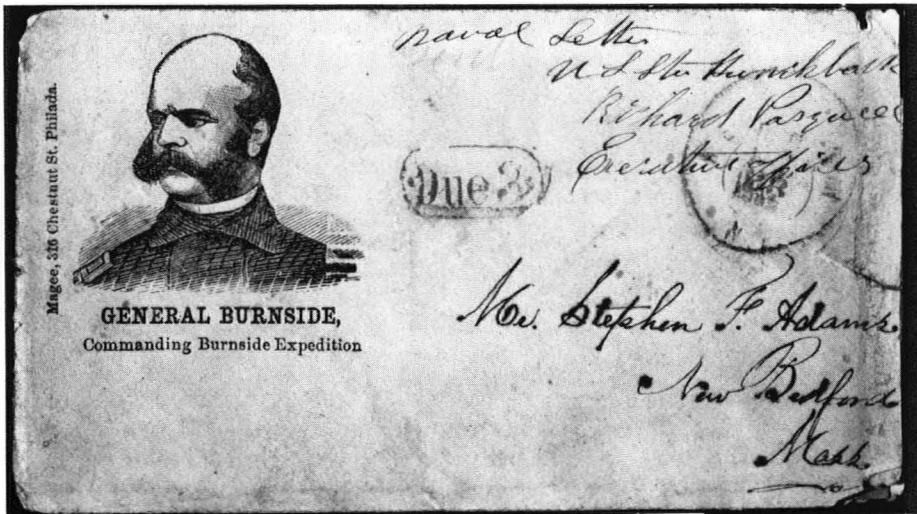 Magee, 316 Chestnut St. Philada.
GENERAL BURNSIDE,
Commanding Burnside Expedition
Naval Letter
U S Str Hunchback
Richard Pasquell
Executive Officer
Due 3
Mr. Stephen F. Adams.
New Bedford
Mass.